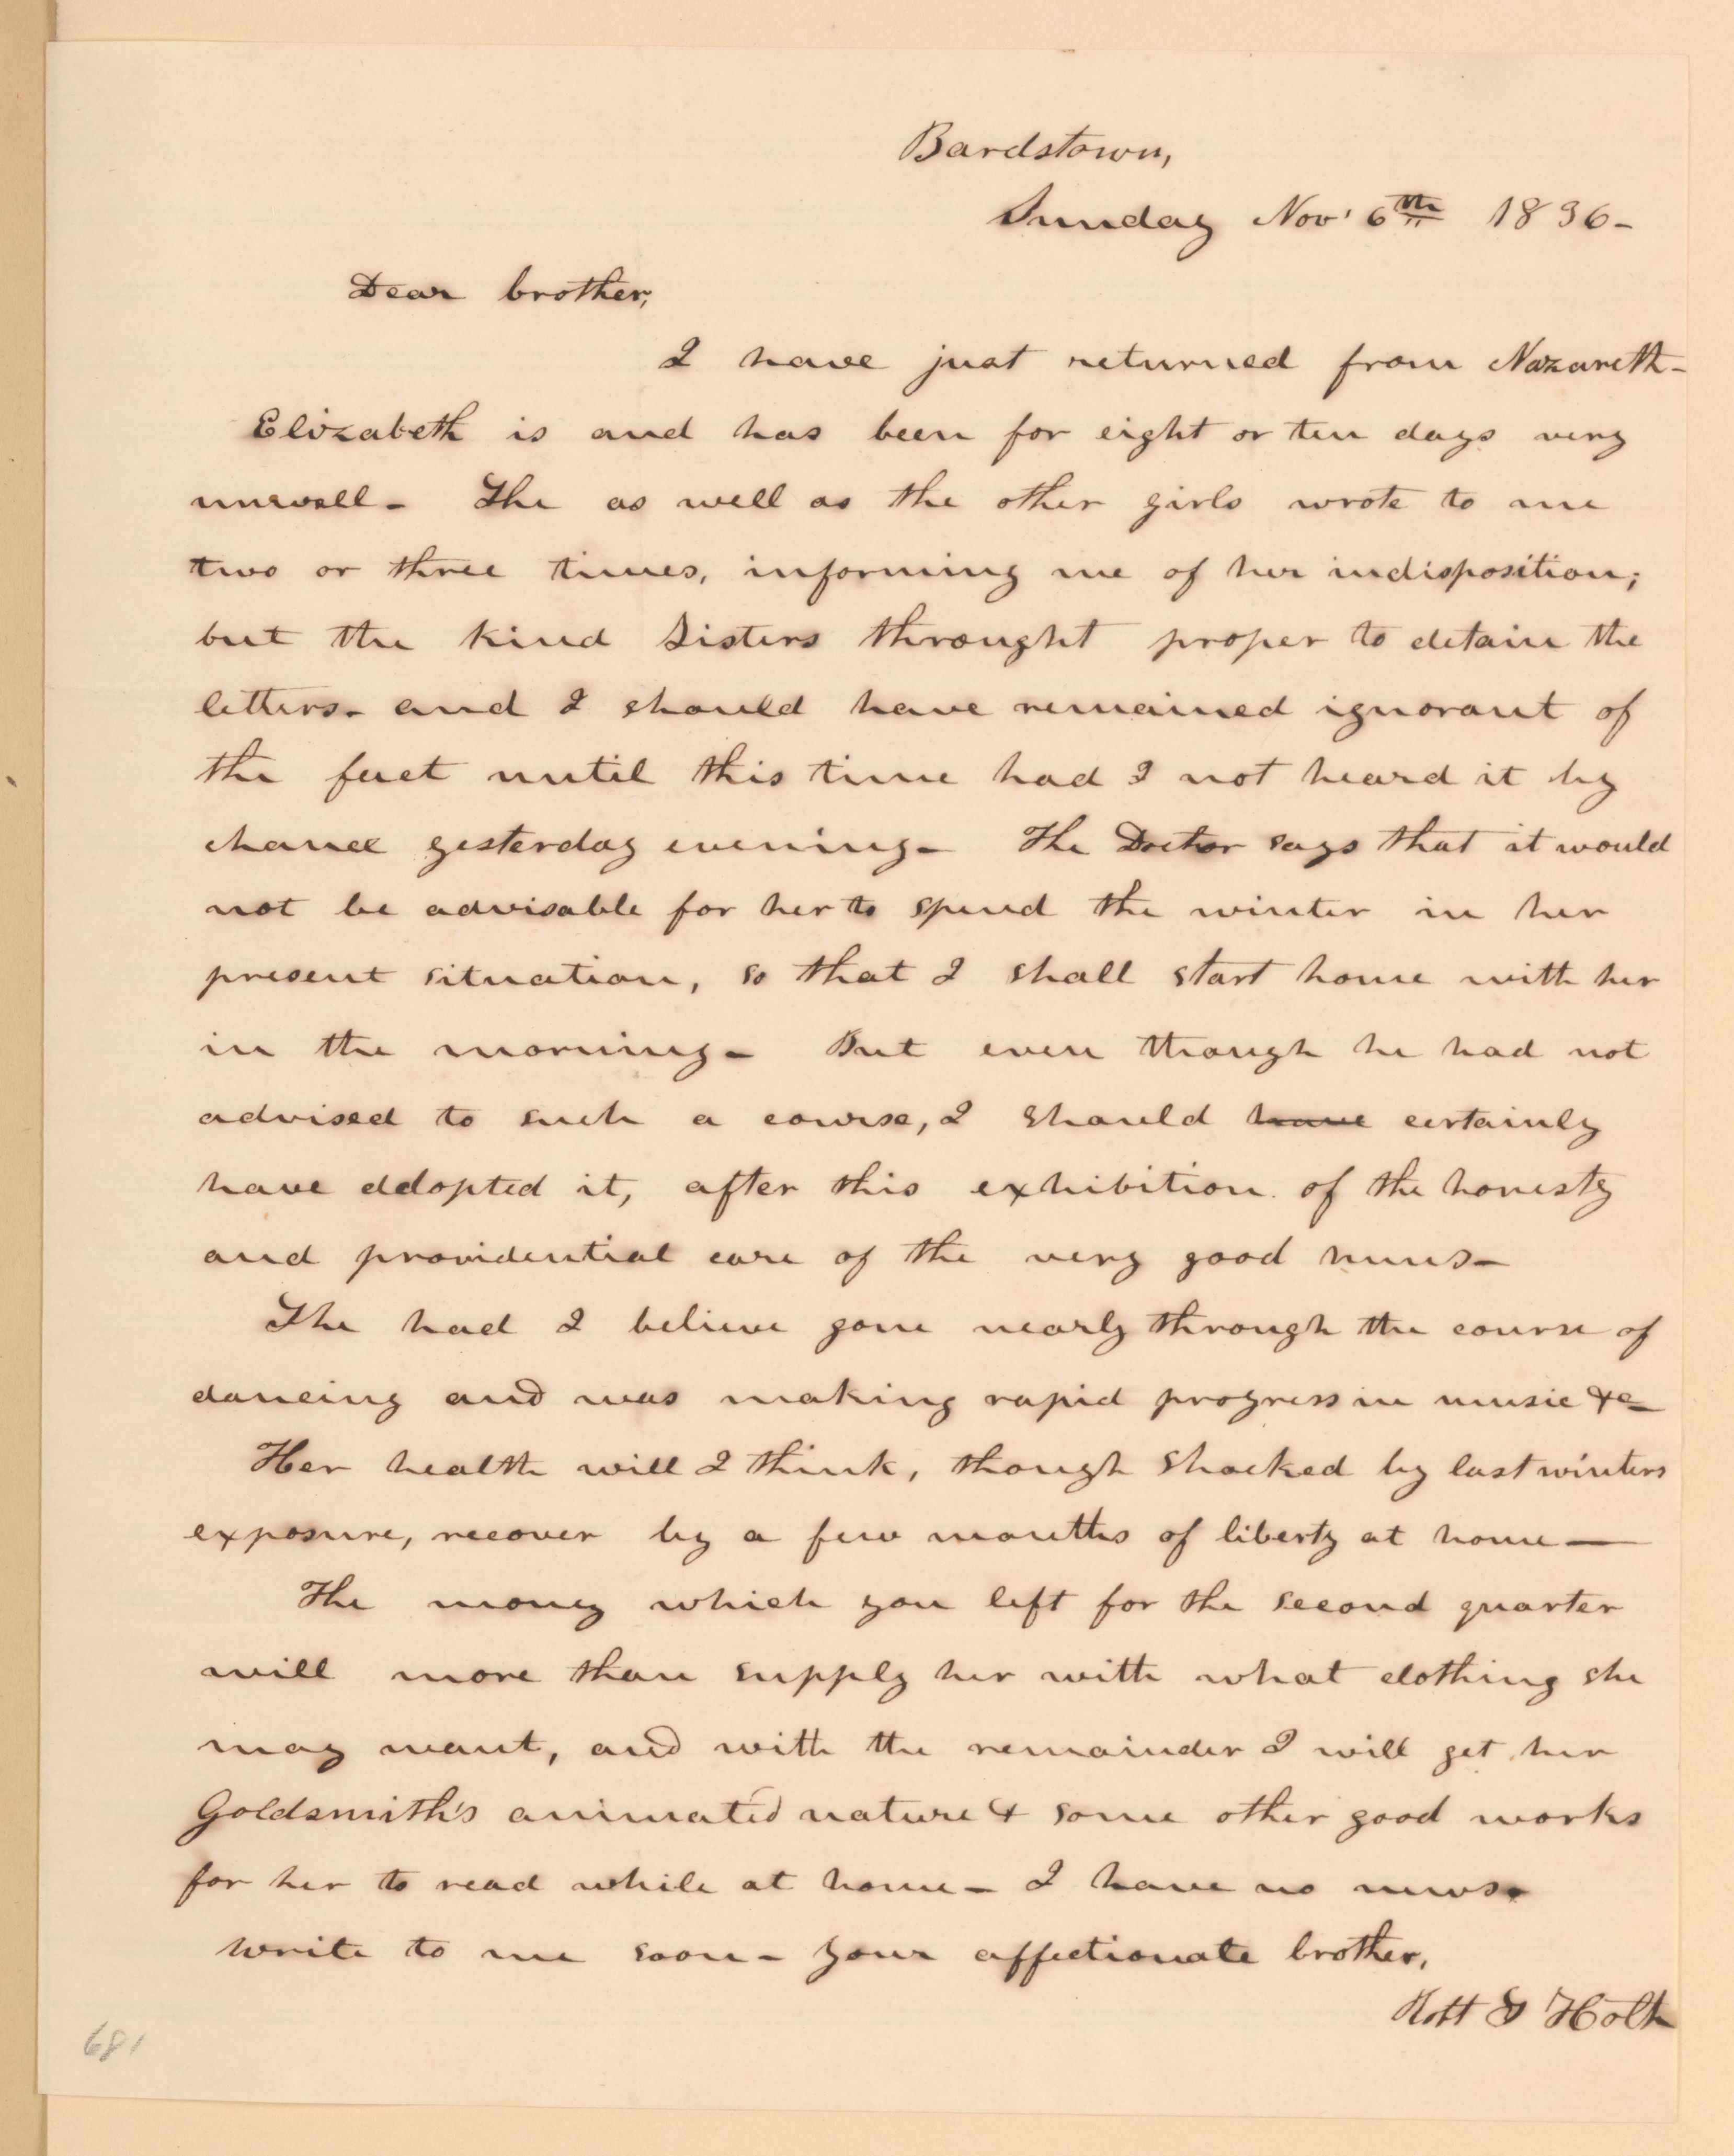 Bardstown,
Sunday Nov' 6th 1836-
Dear brother,
I have just returned from Nazareth-
Elizabeth is and has been for eight or ten days very
unwell- She as well as the other girls wrote to me
two or three times, informing me of her indisposition;
but the kind Sisters throught proper to detain the
letters- and I should have remained ignorant of
the fact until this time had I not heard it by
chance yesterday evening- The Doctor says that it would
not be advisable for her to spend the winter in her
present situation, so that I shall start home with her
in the morning- But even though he had not
advised to such a course, I should have certainly
have adopted it, after this exhibition of the honesty
and providential care of the very good nuns-
She had I believe gone nearly through the course of
dancing and was making rapid progress in music &c-
Her health will I think, though shocked by last winters
exposure, recover by a few months of liberty at home—
The money which you left for the second quarter
will more than supply her with what clothing she
may want, and with the remainder I will get her
Goldsmith's animated nature & some other good works
for her to read while at home- I have no news.
Write to me soon- your affectionate brother,
Robt S Holt
681